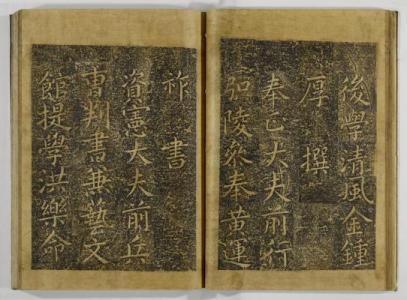 後學清風金鍾
厚撰
奉正大夫前行
弘陵參奉黃運
祚書
資憲大夫前兵
曹判書兼藝文
館提學洪樂命